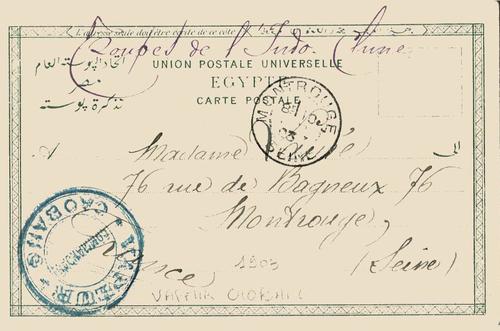 L'adresse seule doit être écrite de ce côté
Troupes de l'Indo-Chine
UNION POSTALE UNIVERSELLE
اتحاد البوستة العام
EGYPTE
مصر
CARTE POSTALE
تذكرة بوستة
MONTROUGE
SEINE
A
الى
Madame
76 rue de Bagneux 76
Montrouge
(Seine)
France
1903
VAPEUR CAOBANG
VAPEUR
CAOBANG